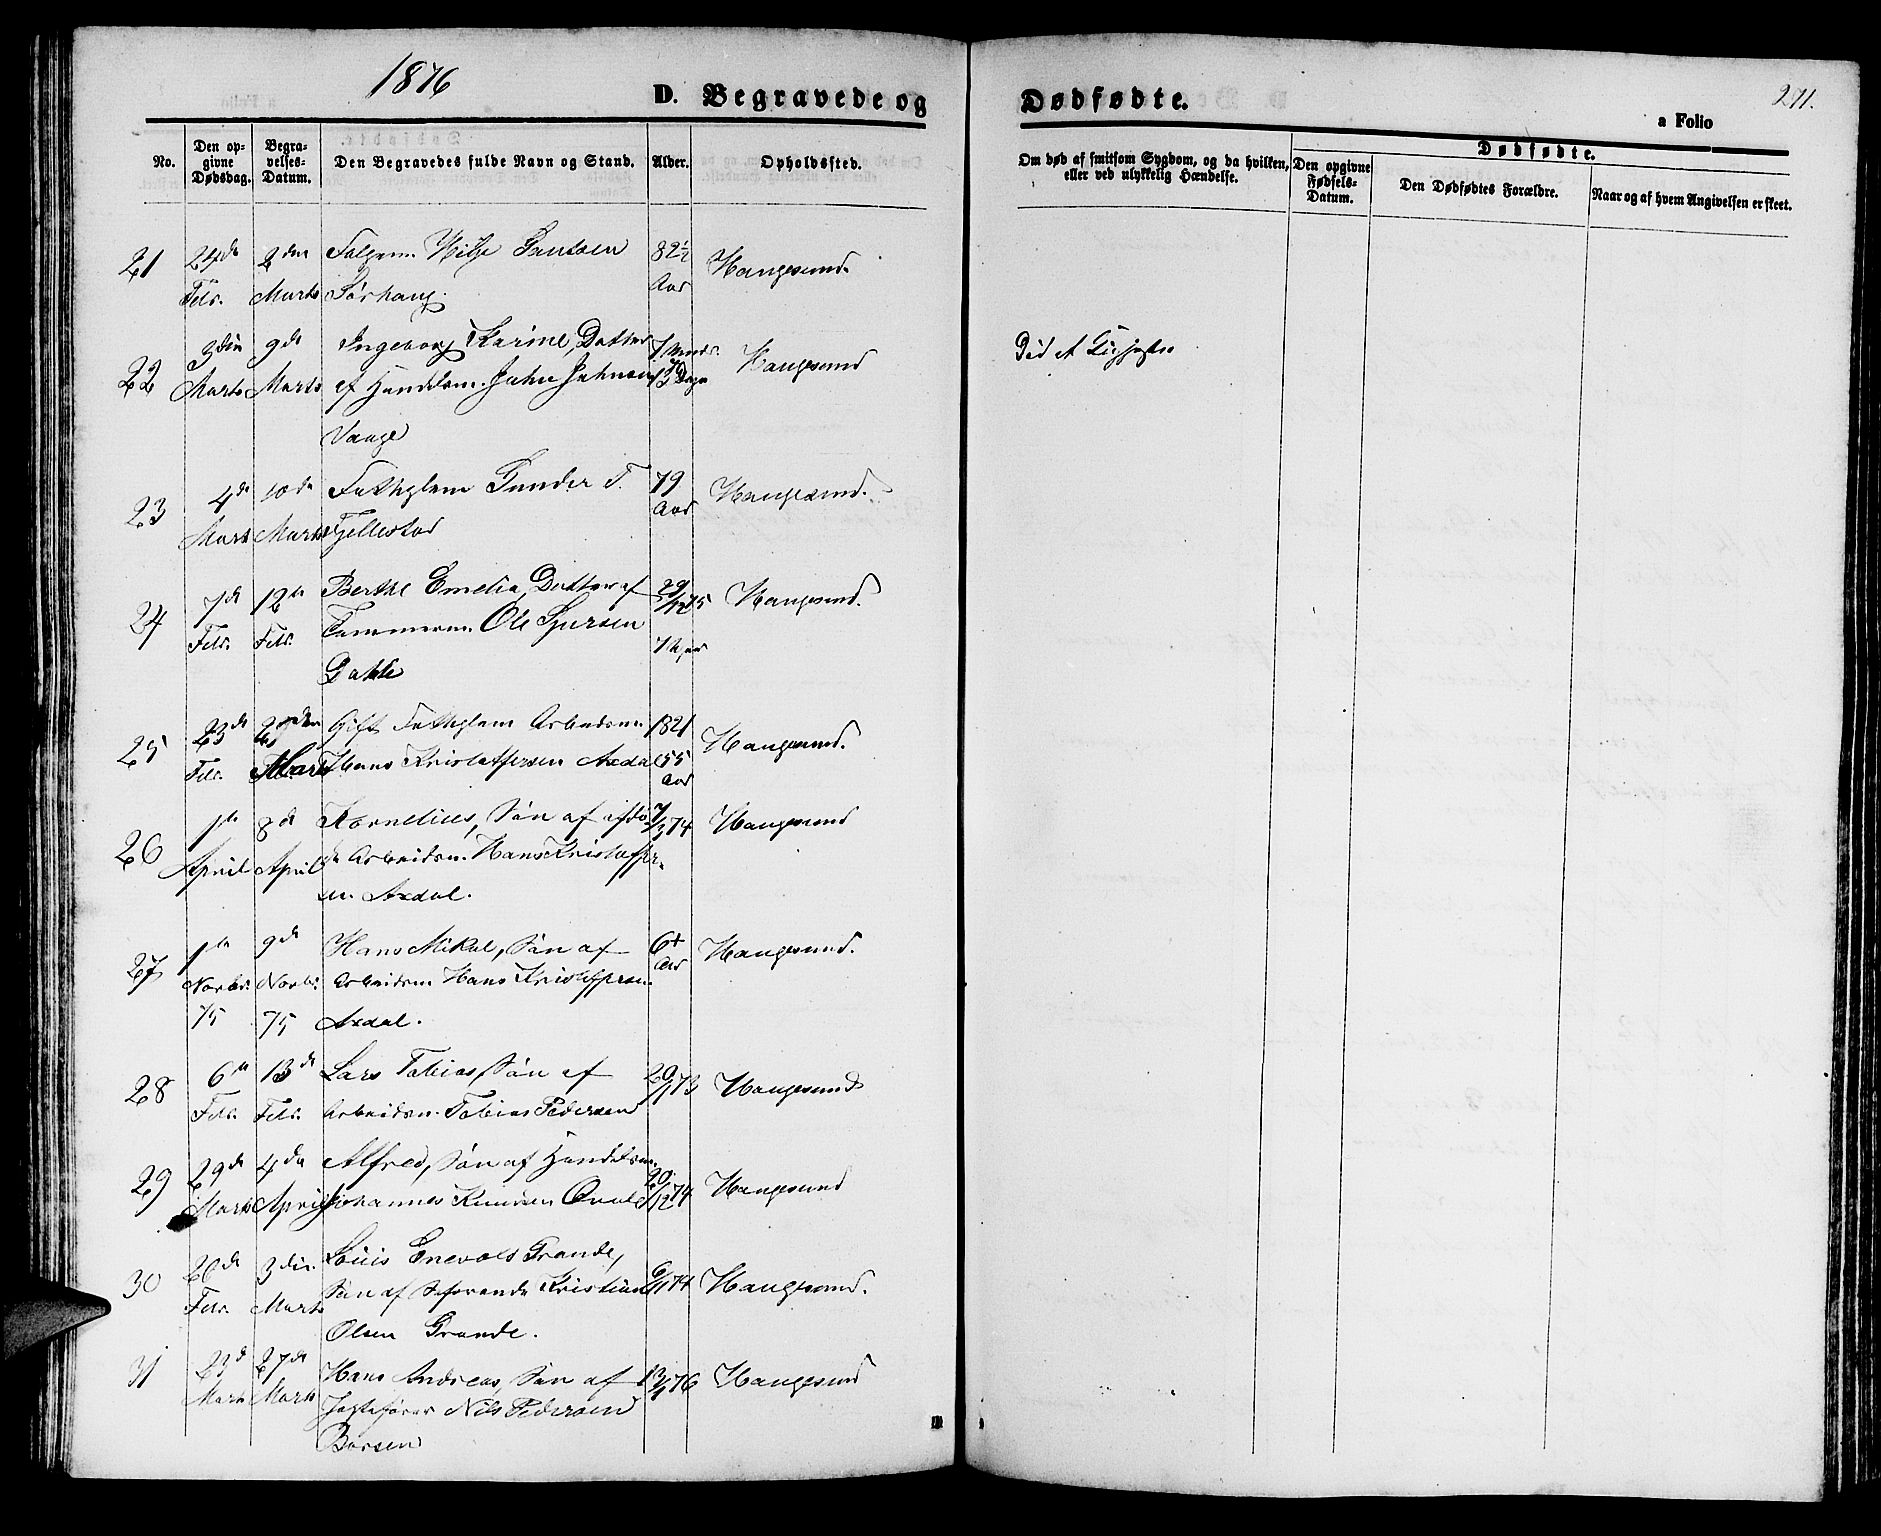 1876
D. Begravede og
Dødfødte.
271.
a Folio
No.
Den opgivne Dødsdag.
Begravelses-Datum.
Den Begravedes fulde Navn og Stand.
Alder.
Opholdssted.
Om død af smitsom Sygdom, og da hvilken,
eller ved ulykkelig Hændelse.
Dødfødte.
Den opgivne Fødsels-Datum.
Den Dødfødtes Forældre.
Naar og af hvem Angivelsen er skeet.
21 24de 2den 82½ Haugesund.
Febr. Marts Sørhaug. Aar
22 3die 9de Ingeborg Karine, Datter 7 Haugesund
Marts Marts af Handelsm. John Johnsen Dage
Vange
23 4de 10de Fattiglem Gunder T. 79 Haugesund.
Marts Marts Fjellestad Aar
24 7de 12te Berthe Emelia, Datter af 29/12 75 Haugesund.
Febr. Febr. Tømmerm. Ole Sjursen
Bakke
25 23de Gift Fattiglem Arbeidsm. 1821 Haugesund.
Febr. Marts Hans Kristoffersen Axdal 55
Aar
26 1ste 8de Kornelius, Søn af afdø- 74 Haugesund
April April de Arbeidsm. Hans Kristoffer-
sen Axdal.
27 1ste 9de Hans Mikal, Søn af 6 Haugesund.
Novbr. Novbr. Arbeidsm. Hans Kristoffersen Aar
75 75 Axdal.
28 6te 13de Lars Tobias, Søn af 20/1 73 Haugesund
Febr. Febr. Arbeidsm. Tobias Pedersen
29 29de 4de Alfred, Søn af Handelsm. 20/12 74 Haugesund
Marts April Johannes Knudsen Qvale
30 26de 3die Louis Enevold Grande, 6/1 74 Haugesund.
Febr. Marts Søn af Kristian
Olsen Grande.
31 23de 27de Hans Andreas, Søn af 13/1 76 Haugesund
Marts Marts Jagtefører Nils Pedersen
Borsen